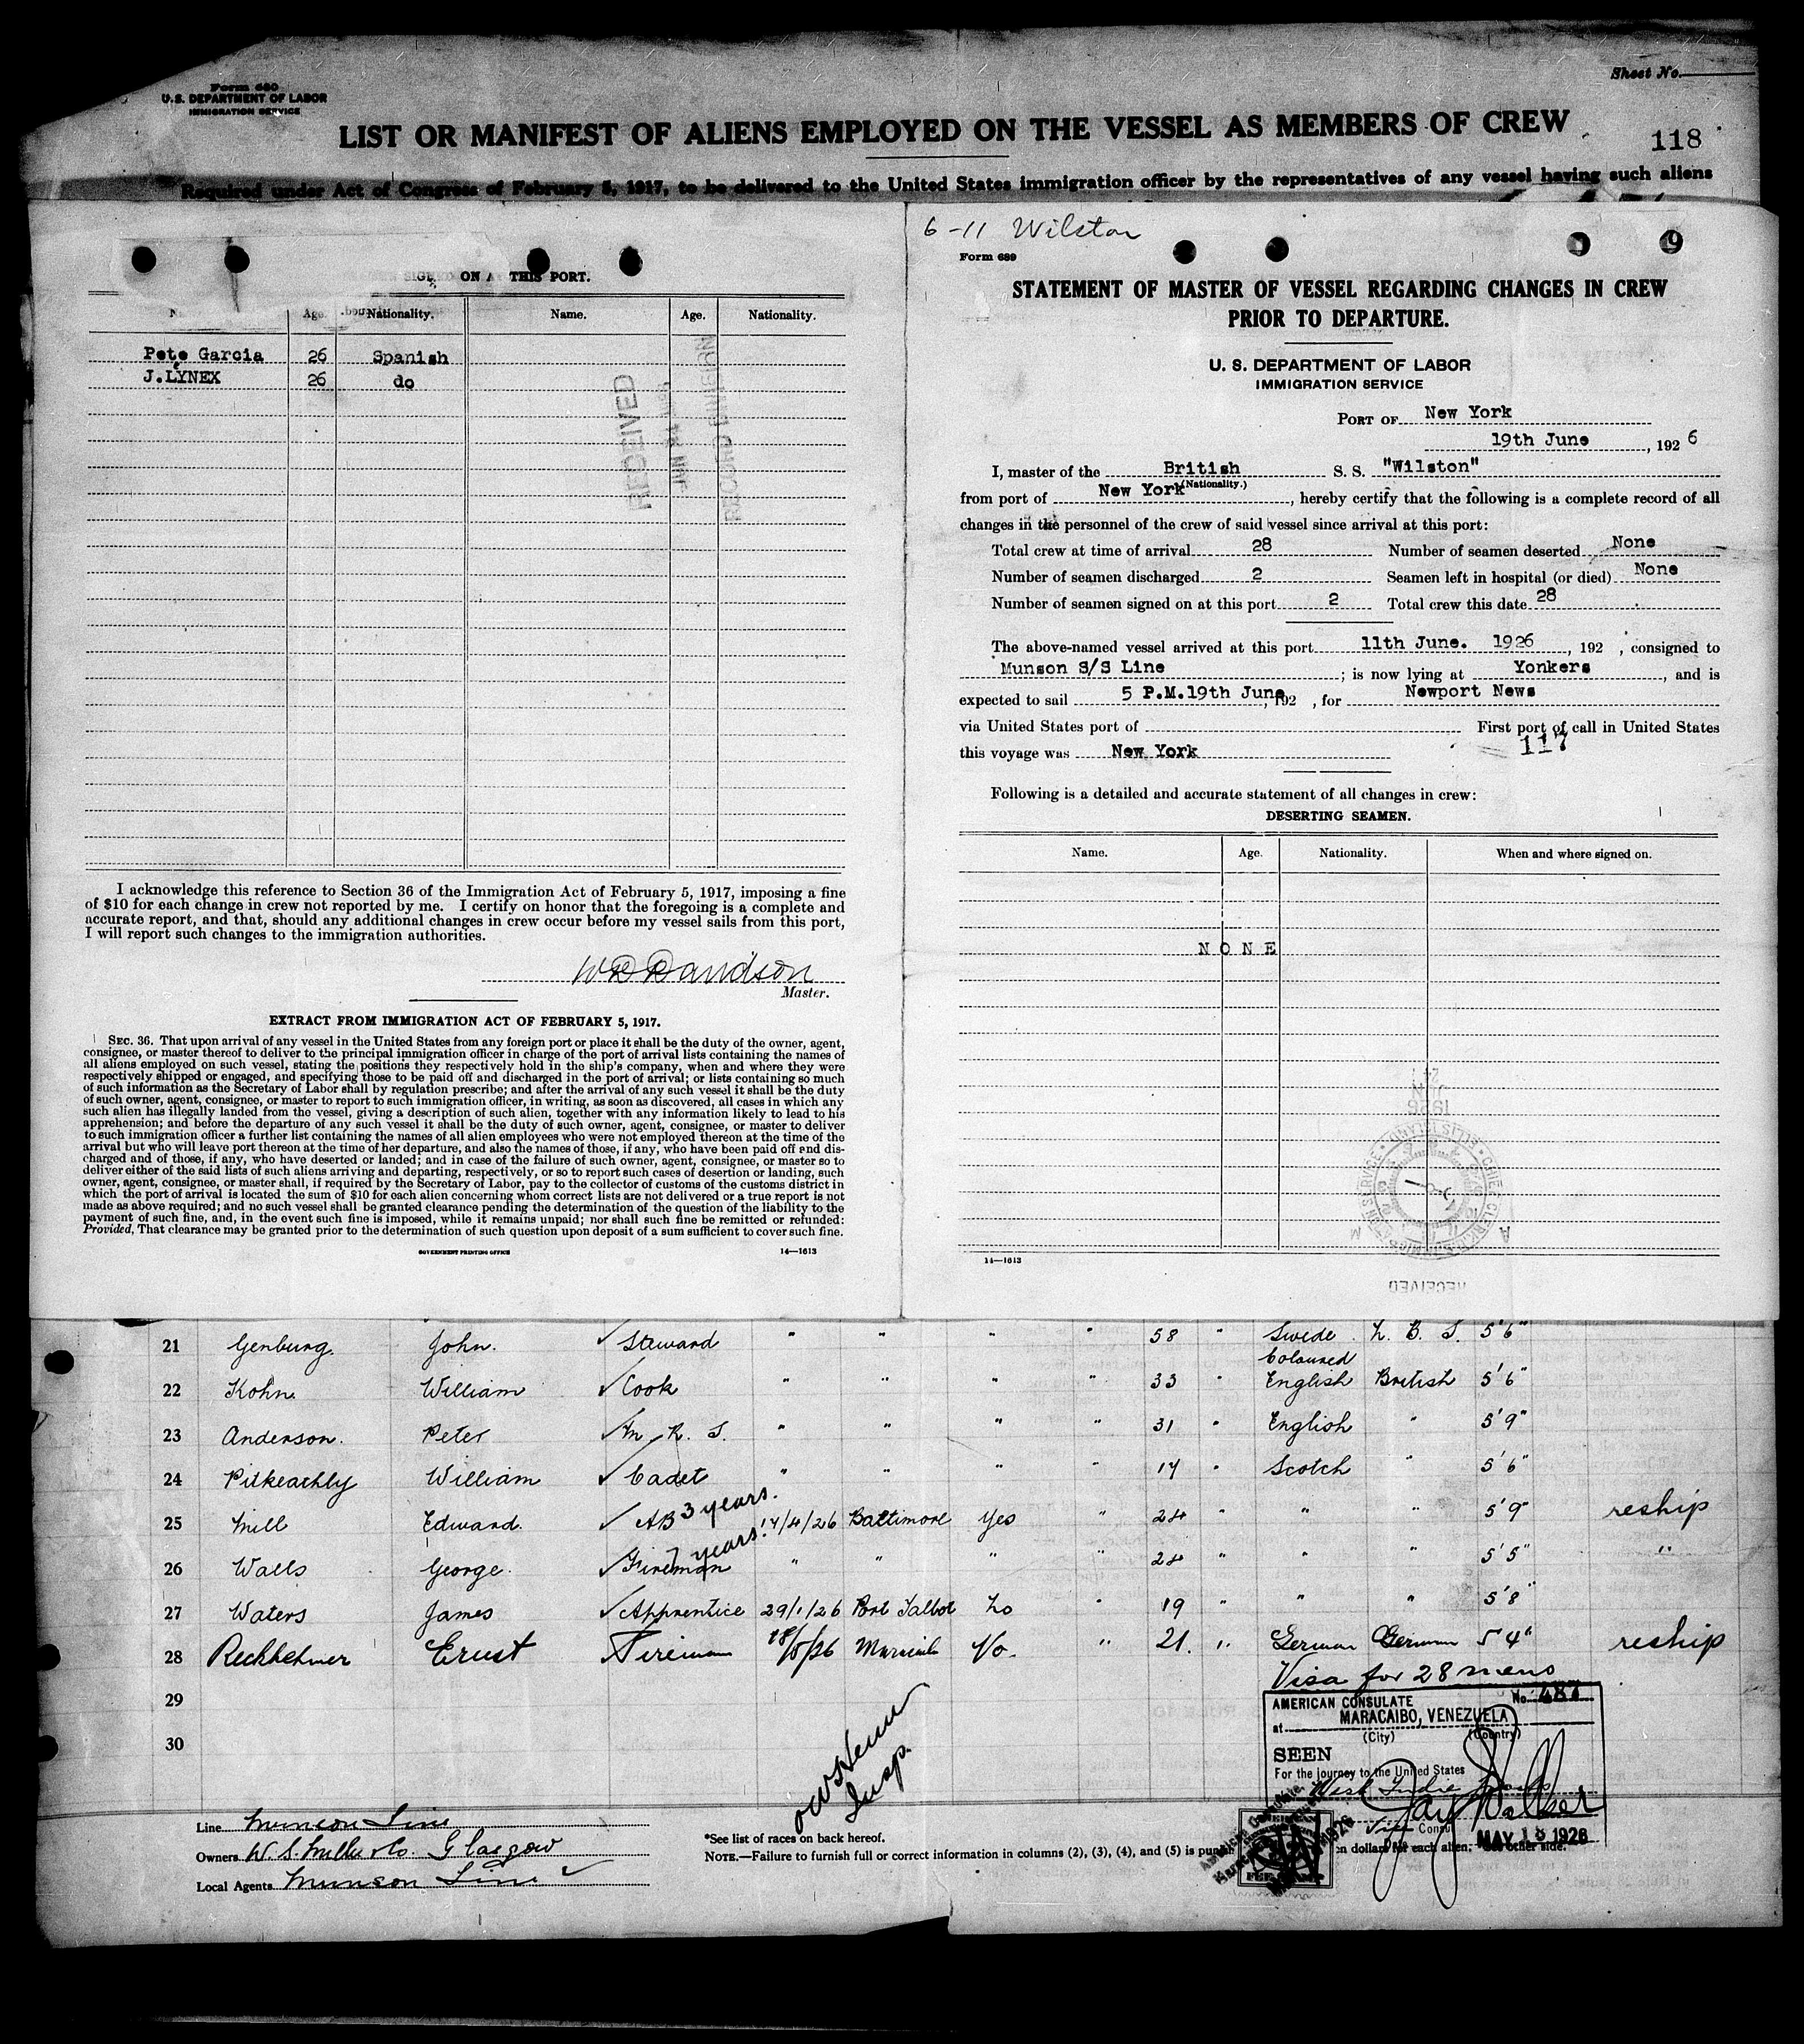 Form 680
U.S. DEPARTMENT OF LABOR
IMMIGRATION SERVICE
Sheet No.
LIST OR MANIFEST OF ALIENS EMPLOYED ON THE VESSEL AS MEMBERS OF CREW
118
Required under Act of Congress of February 5, 1917, to be delivered to the United States immigration officer by the representatives of any vessel having such aliens
SIGNED ON AT THIS PORT.
Age. Nationality. Name. Age. Nationality.
Pete Garcia 26 Spanish
J.LYNEX 26 do
RECEIVED
I acknowledge this reference to Section 36 of the Immigration Act of February 5, 1917, imposing a fine
of $10 for each change in crew not reported by me. I certify on honor that the foregoing is a complete and
accurate report, and that, should any additional changes in crew occur before my vessel sails from this port,
I will report such changes to the immigration authorities.
Master.
EXTRACT FROM IMMIGRATION ACT OF FEBRUARY 5, 1917.
SEC. 36. That upon arrival of any vessel in the United States from any foreign port or place it shall be the duty of the owner, agent,
consignee, or master thereof to deliver to the principal immigration officer in charge of the port of arrival lists containing the names of
all aliens employed on such vessel, stating the positions they respectively hold in the ship's company, when and where they were
respectively shipped or engaged, and specifying those to be paid off and discharged in the port of arrival; or lists containing so much
of such information as the Secretary of Labor shall by regulation prescribe; and after the arrival of any such vessel it shall be the duty
of such owner, agent, consignee, or master to report to such immigration officer, in writing, as soon as discovered, all cases in which any
such alien has illegally landed from the vessel, giving a description of such alien, together with any information likely to lead to his
apprehension; and before the departure of any such vessel it shall be the duty of such owner, agent, consignee, or master to deliver
to such immigration officer a further list containing the names of all alien employees who were not employed thereon at the time of the
arrival but who will leave port thereon at the time of her departure, and also the names of those, if any, who have been paid off and dis-
charged and of those, if any, who have deserted or landed; and in case of the failure of such owner, agent, consignee, or master so to
deliver either of the said lists of such aliens arriving and departing, respectively, or so to report such cases of desertion or landing, such
owner, agent, consignee, or master shall, if required by the Secretary of Labor, pay to the collector of customs of the customs district in
which the port of arrival is located the sum of $10 for each alien concerning whom correct lists are not delivered or a true report is not
made as above required; and no such vessel shall be granted clearance pending the determination of the question of the liability to the
payment of such fine, and, in the event such fine is imposed, while it remains unpaid; nor shall such fine be remitted or refunded:
Provided, That clearance may be granted prior to the determination of such question upon deposit of a sum sufficient to cover such fine.
GOVERNMENT PRINTING OFFICE 14—1613
6-11 Wilston
9
Form 689
STATEMENT OF MASTER OF VESSEL REGARDING CHANGES IN CREW
PRIOR TO DEPARTURE.
U. S. DEPARTMENT OF LABOR
IMMIGRATION SERVICE
PORT OF New York
19th June, 1926
I, master of the British S. S. "Wilston"
(Nationality.)
from port of New York, hereby certify that the following is a complete record of all
changes in the personnel of the crew of said vessel since arrival at this port:
Total crew at time of arrival 28 Number of seamen deserted None
Number of seamen discharged 2 Seamen left in hospital (or died) None
Number of seamen signed on at this port 2 Total crew this date 28
The above-named vessel arrived at this port 11th June. 1926, 192 , consigned to
Munson S/S Line; is now lying at Yonkers, and is
expected to sail 5 P.M.19th June, 192 , for Newport News
via United States port of First port of call in United States
this voyage was New York
117
Following is a detailed and accurate statement of all changes in crew:
DESERTING SEAMEN.
Name. Age. Nationality. When and where signed on.
NONE
14—1613
RECEIVED
21 Genburg. John. ✓ Steward " " " " 58 " Swede U. B. S. 5'6"
Coloured
22 Kohn William ✓ Cook " " " " 33 " English British 5'6"
23 Anderson. Peter ✓ " " " " 31 " English " 5'9"
24 Pitkeathly William ✓ Cadet " " " 17 " Scotch " 5'6"
25 Mill Edward. ✓ AB 3 years. 17/4/26 Baltimore Yes " 24 " " " 5'9" reship
26 Walls George. ✓ Fireman 7 years. " " " " 24 " " " 5'5" "
27 Waters James ✓ Apprentice 29/1/26 Port Talbot No " 19 " " " 5'8"
28 Ernst Fireman 18/5/26 No. " 21. " German German 5 4" reship
29
30
Visa for 28 mens
AMERICAN CONSULATE No. 487
at MARACAIBO, VENEZUELA
(City) (Country)
SEEN
For the journey to the United States
Jay Walker
Vice Consul
MAY 18 1926
Insp.
Line Munson Line
Owners W. S. Miller & Co. Glasgow
Local Agents Munson Line ✓
*See list of races on back hereof.
NOTE.—Failure to furnish full or correct information in columns (2), (3), (4), and (5) is dollars for each alien. See other side.